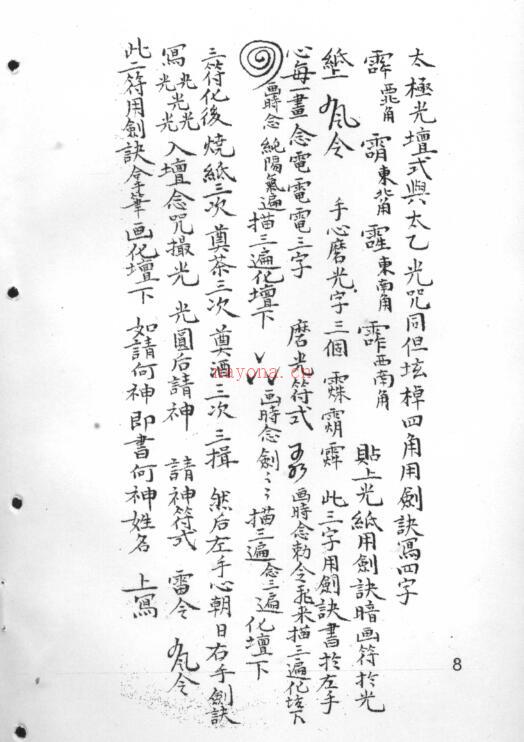 太極光壇式與太乙光咒同但坛棹四角用劍訣寫四字
西北角 東北角 東南角 西南角 貼上光紙用劍訣暗画符於光
紙上 手心磨光字三個 此三字用劍訣書於左手
心每一畫念電電電三字 磨光符式 画時念勅令 米描三遍化坛下
画時念純陽氣遍描三遍化壇下 画時念劍〻〻描三遍念三遍化壇下
三符化後燒紙三次奠茶三次奠酒三次三揖 然后左手心朝日右手劍訣
寫光光光光光光入壇念咒撮光 光圓后請神 請神符式 雷令
此二符用劍訣合筆画化壇下 如請何神即書何神姓名 上寫
8
nayona.cn